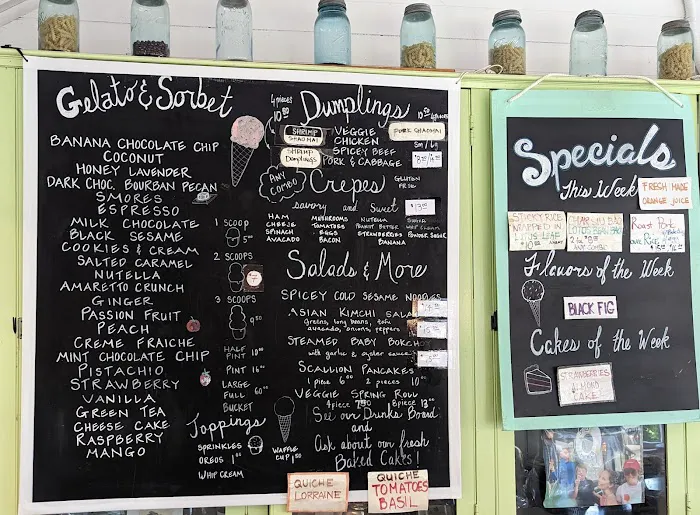 Gelato & Sorbet
BANANA CHOCOLATE CHIP
COCONUT
HONEY LAVENDER
DARK CHOC. BOURBAN PECAN
SMORES
ESPRESSO
MILK CHOCOLATE
BLACK SESAME
COOKIES & CREAM
SALTED CARAMEL
NUTELLA
AMARETTO CRUNCH
GINGER
PASSION FRUIT
PEACH
CREME FRAICHE
MINT CHOCOLATE CHIP
PISTACHIO
STRAWBERRY
VANILLA
GREEN TEA
CHEESE CAKE
RASPBERRY
MANGO
1 SCOOP
2 SCOOPS
3 SCOOPS
9.50
HALF PINT 10.00
PINT 16.00
LARGE
FULL 60.00
BUCKET
Toppings
SPRINKLES
OREOS 1.00
WHIP CREAM
WAFFLE
CUP 1.50
Dumplings
4 pieces
SHRIMP
SHAOMAI
SHRIMP
Dumplings
VEGGIE
CHICKEN
SPICEY BEEF
PORK & CABBAGE
10.50 4 pieces
PORK SHAOMAI
Sm / Lg
ANY
COMBO
Crepes
GLUTEN
FREE
savory and Sweet
HAM
CHEESE
SPINACH
AVACADO
MUSHROOMS
TOMATOES
EGGS
BACON
NUTELLA
PEANUT BUTTER
STRAWBERRIES
BANANA
POWDER SUGAR
Salads & More
SPICEY COLD SESAME NOODLES
ASIAN KIMCHI SALAD
greens, long beans, tofu
avocado, onions, peppers
STEAMED BABY BOKCHOY
with garlic & oyster sauce
SCALLION PANCAKES
1 piece 6.00 2 pieces 10.00
VEGGIE SPRING ROLL
4 piece 7.50 8 piece 13.00
See our Drinks Board
and
Ask about our fresh
Baked Cakes!
QUICHE
LORRAINE
QUICHE
TOMATOES
BASIL
Specials
This Week
FRESH MADE
ORANGE JUICE
STICKY RICE
WRAPPED IN
LOTUS LEAF
Roast Pork
over Rice
Flavors of the Week
BLACK FIG
Cakes of the Week
STRAWBERRIES
ALMOND
CAKE